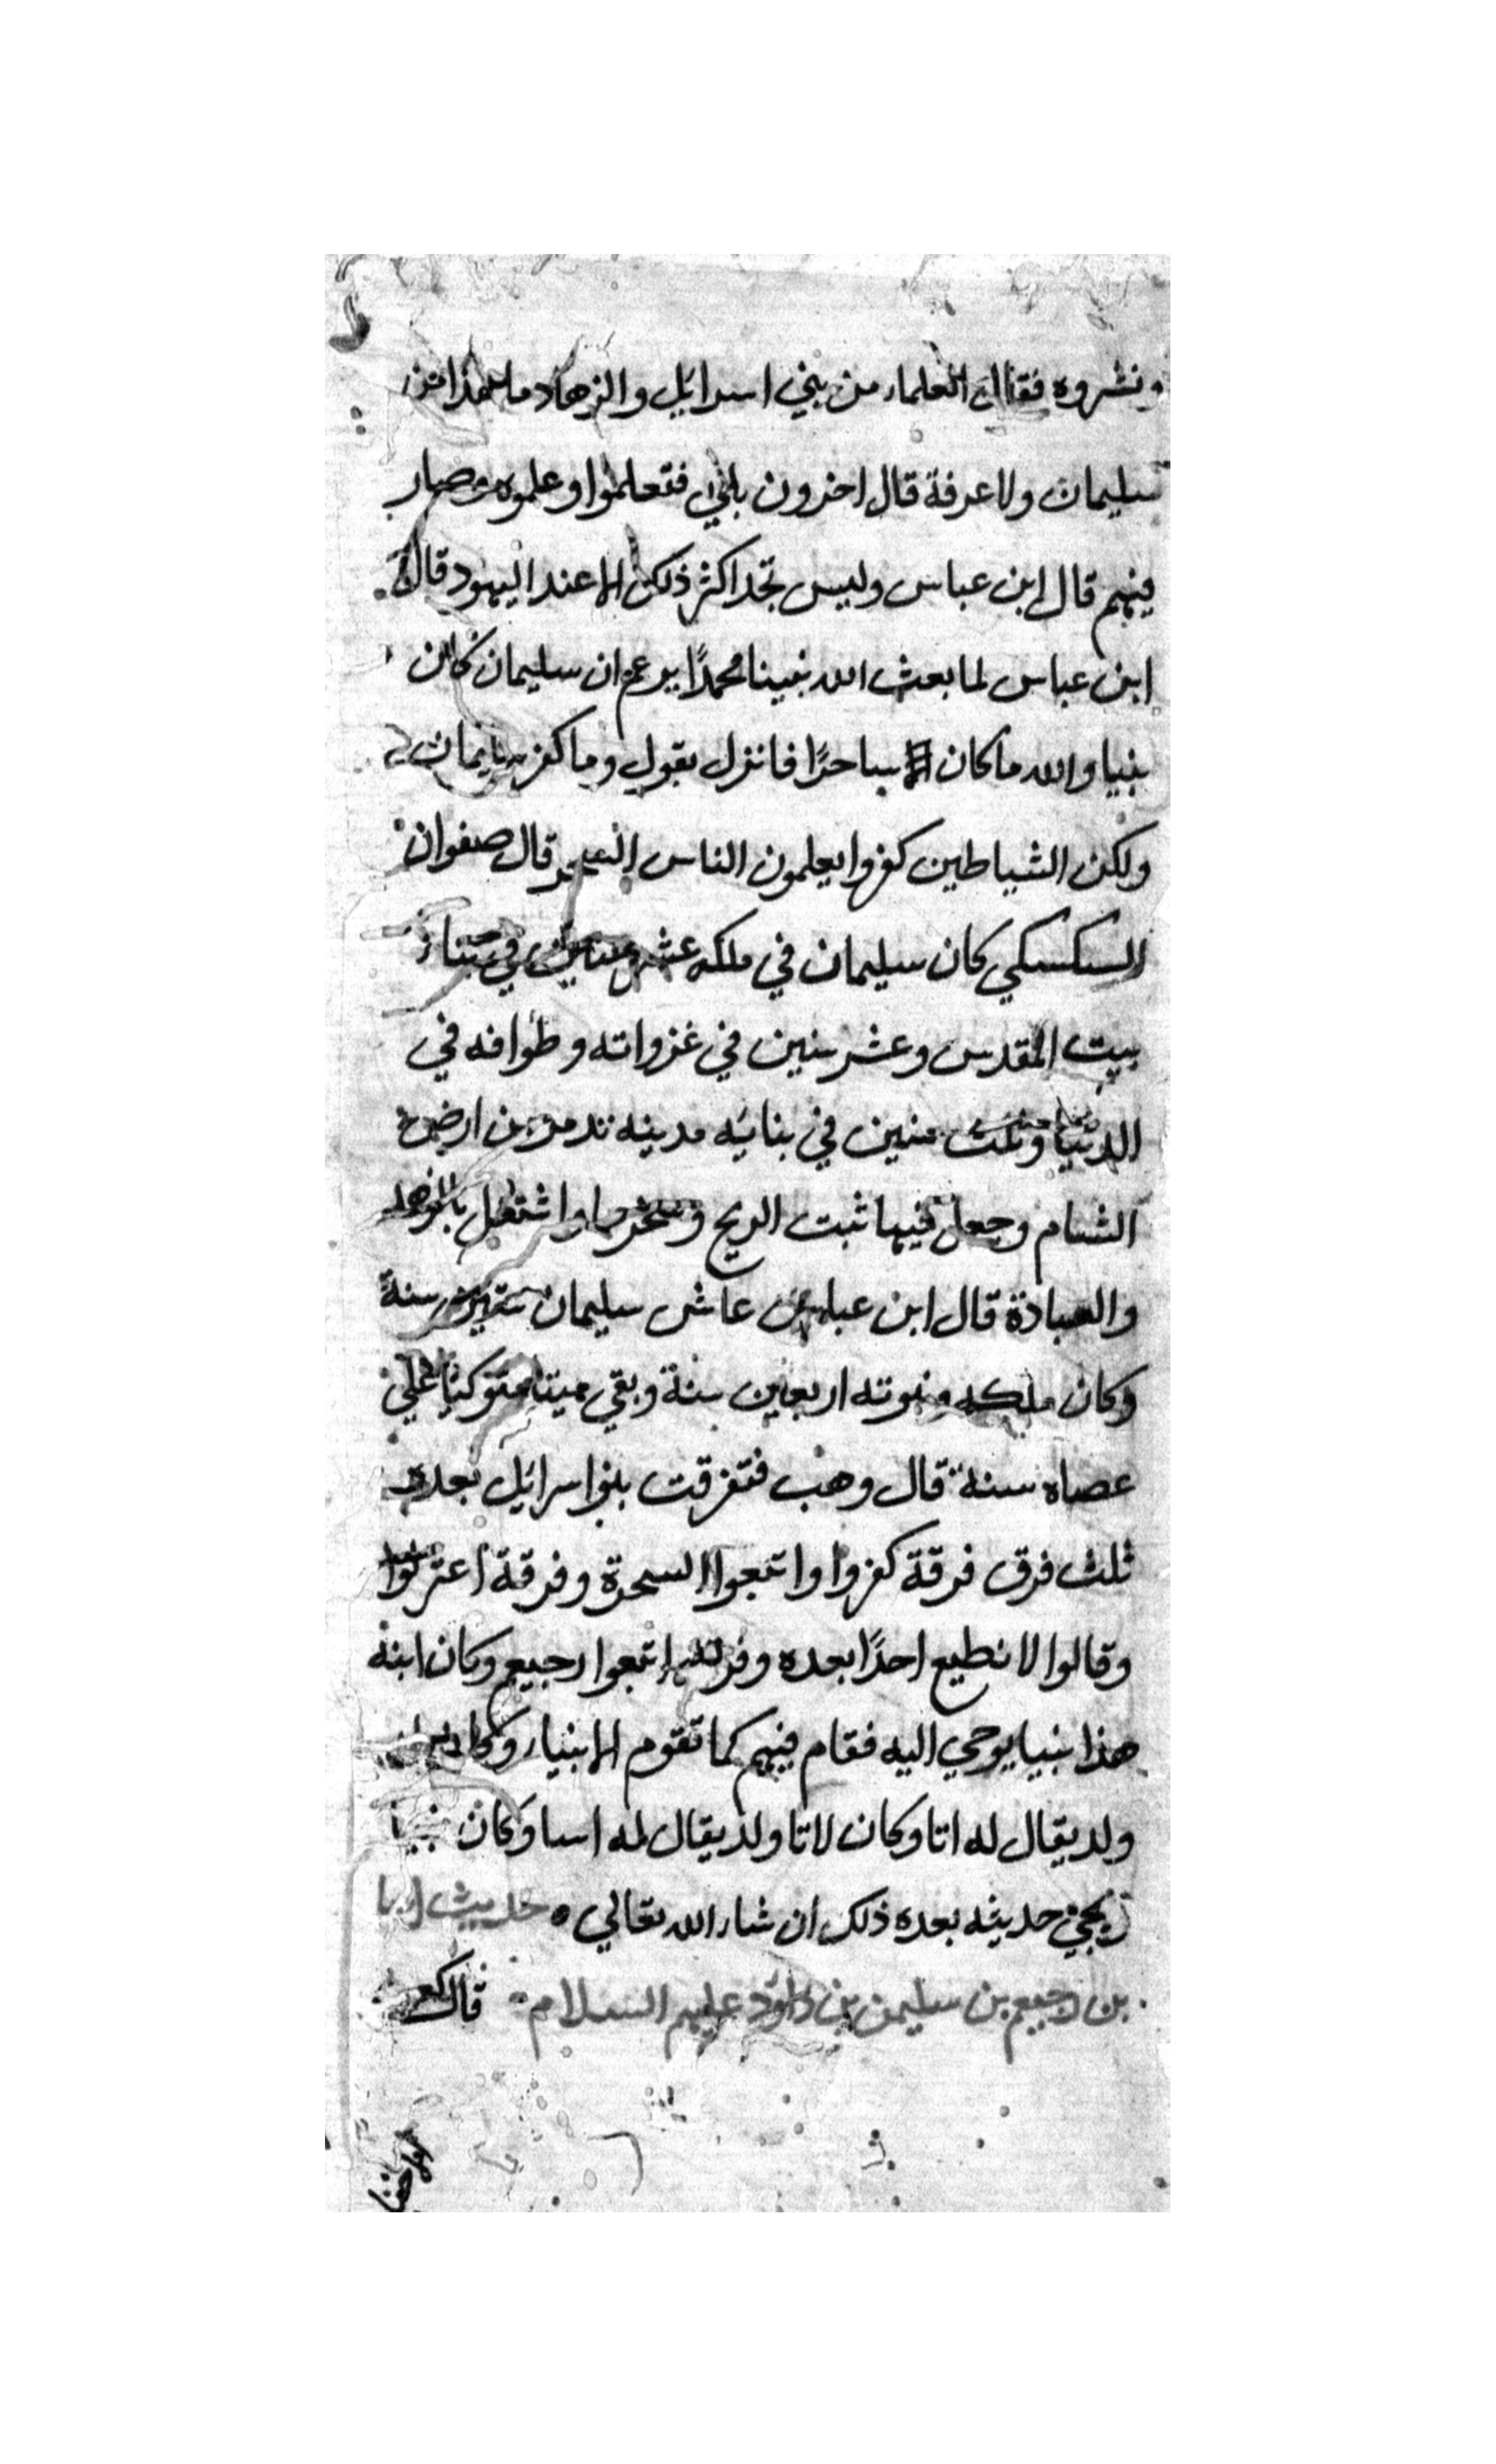 ونشروه فقال العلماء من بني اسرايل والزهاد ما هذا من
سليمان ولا عرفة قال اخرون بلي فتعلموا وعلموه وصار
فيهم قال ابن عباس وليس تجد اكثر ذلك الا عند اليهود قال
ابن عباس لما بعث الله نبينا محمدًا يزعم ان سليمان كان
نبيا والله ما كان الا ساحرًا فانزل بقول وما كفر سليمان
ولكن الشياطين كفروا يعلمون الناس السحر قال صفوان
السكسكي كان سليمان في ملكه عشر سنين في بناء
بيت المقدس وعشر سنين في غزواته وطوافه في
الدنيا وثلث سنين في بنايه مدينه تدمر من ارض
الشام وجعل فيها ثبت الريح واشتغل بالزهد
والعبادة قال ابن عباس عاش سليمان ستين سنة
وكان ملكه ونبوته اربعين سنة وبقي ميتا متوكيا علي
عصاه سنة قال وهب فتفرقت بنوا سرايل بعده
ثلث فرق فرقة كفروا واتبعوا السحرة وفرقة اعتزلوا
وقالوا لا نطيع احدًا بعده وفرقة اتبعوا رحبيعم وكان ابنه
هذا نبيا يوحي اليه فقام فيهم كما تقوم الانبياء وكان
ولد يقال له اتا وكان لاتا ولد يقال له اسا وكان نبيا
يجي حديثه بعده ذلك ان شاء الله تعالي ه حديث ابا
بن رحبيعم بن سليمن بن داود عليهم السلام قال كعب